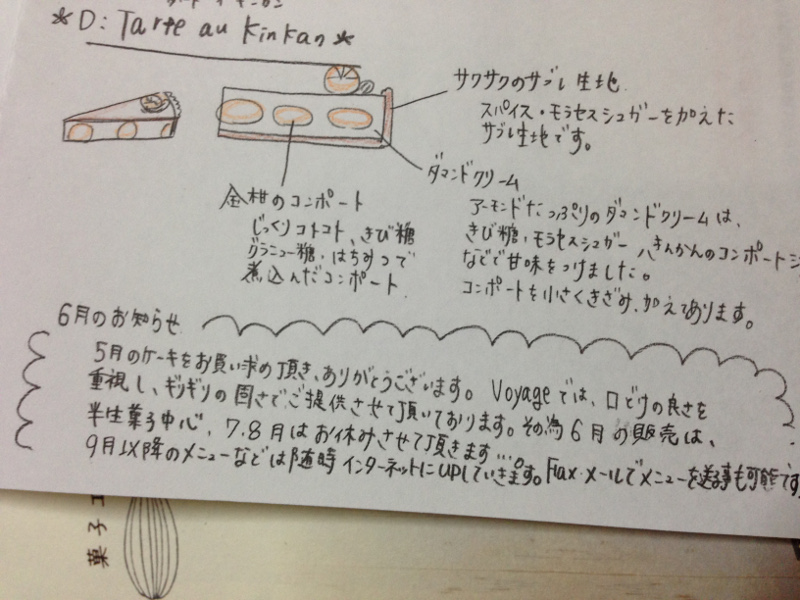 *D: Tarte au Kinkan*
サクサクのサブレ生地
スパイス・モラセスシュガーを加えた
サブレ生地です。
ダマンドクリーム
アーモンドたっぷりのダマンドクリームは、
きび糖・モラセスシュガー、きんかんのコンポート
などで甘味をつけました。
コンポートを小さくきざみ、加えてあります。
金柑のコンポート
じっくりコトコト、きび糖
グラニュー糖・はちみつで
煮込んだコンポート
6月のお知らせ
5月のケーキをお買い求め頂き、ありがとうございます。Voyageでは、口どけの良さを
重視し、ギリギリの固さでご提供させて頂いております。その為6月の販売は、
半生菓子中心、7.8月はお休みさせて頂きます…。
9月以降のメニューなどは随時インターネットにUPしていきます。Fax・メールでメニューを送る事も可能です
菓子工